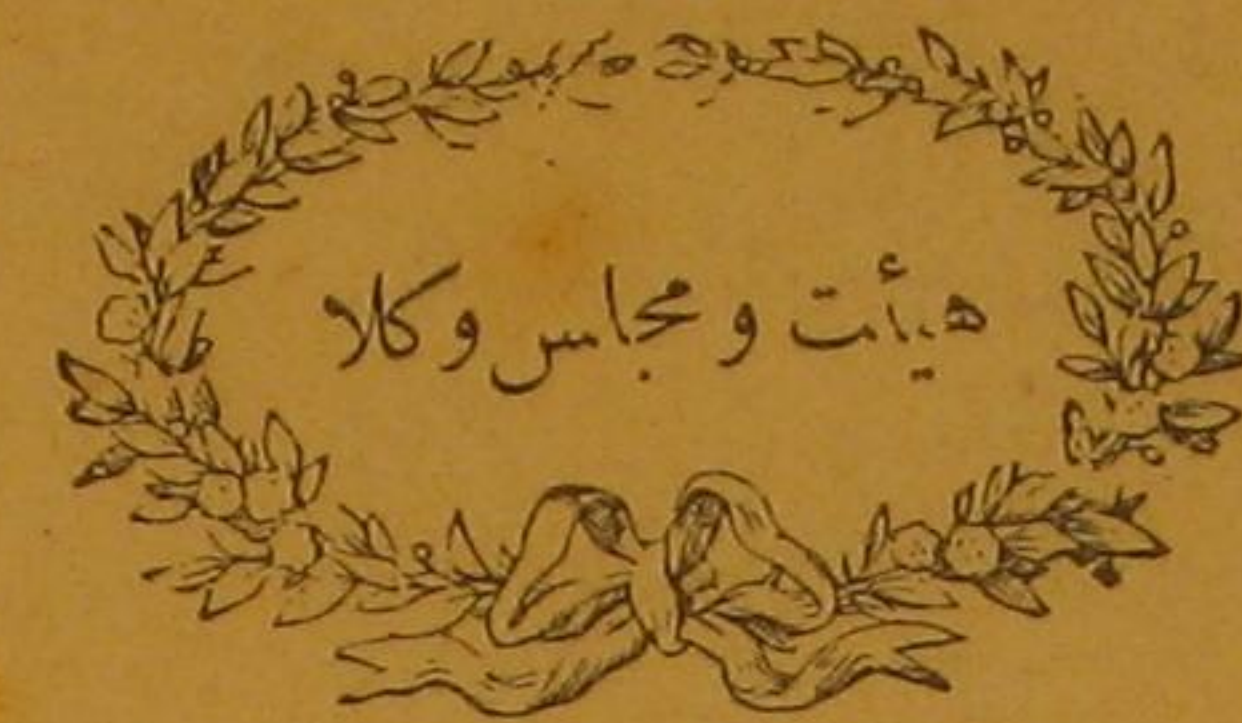 هيأت و مجلس وكلا